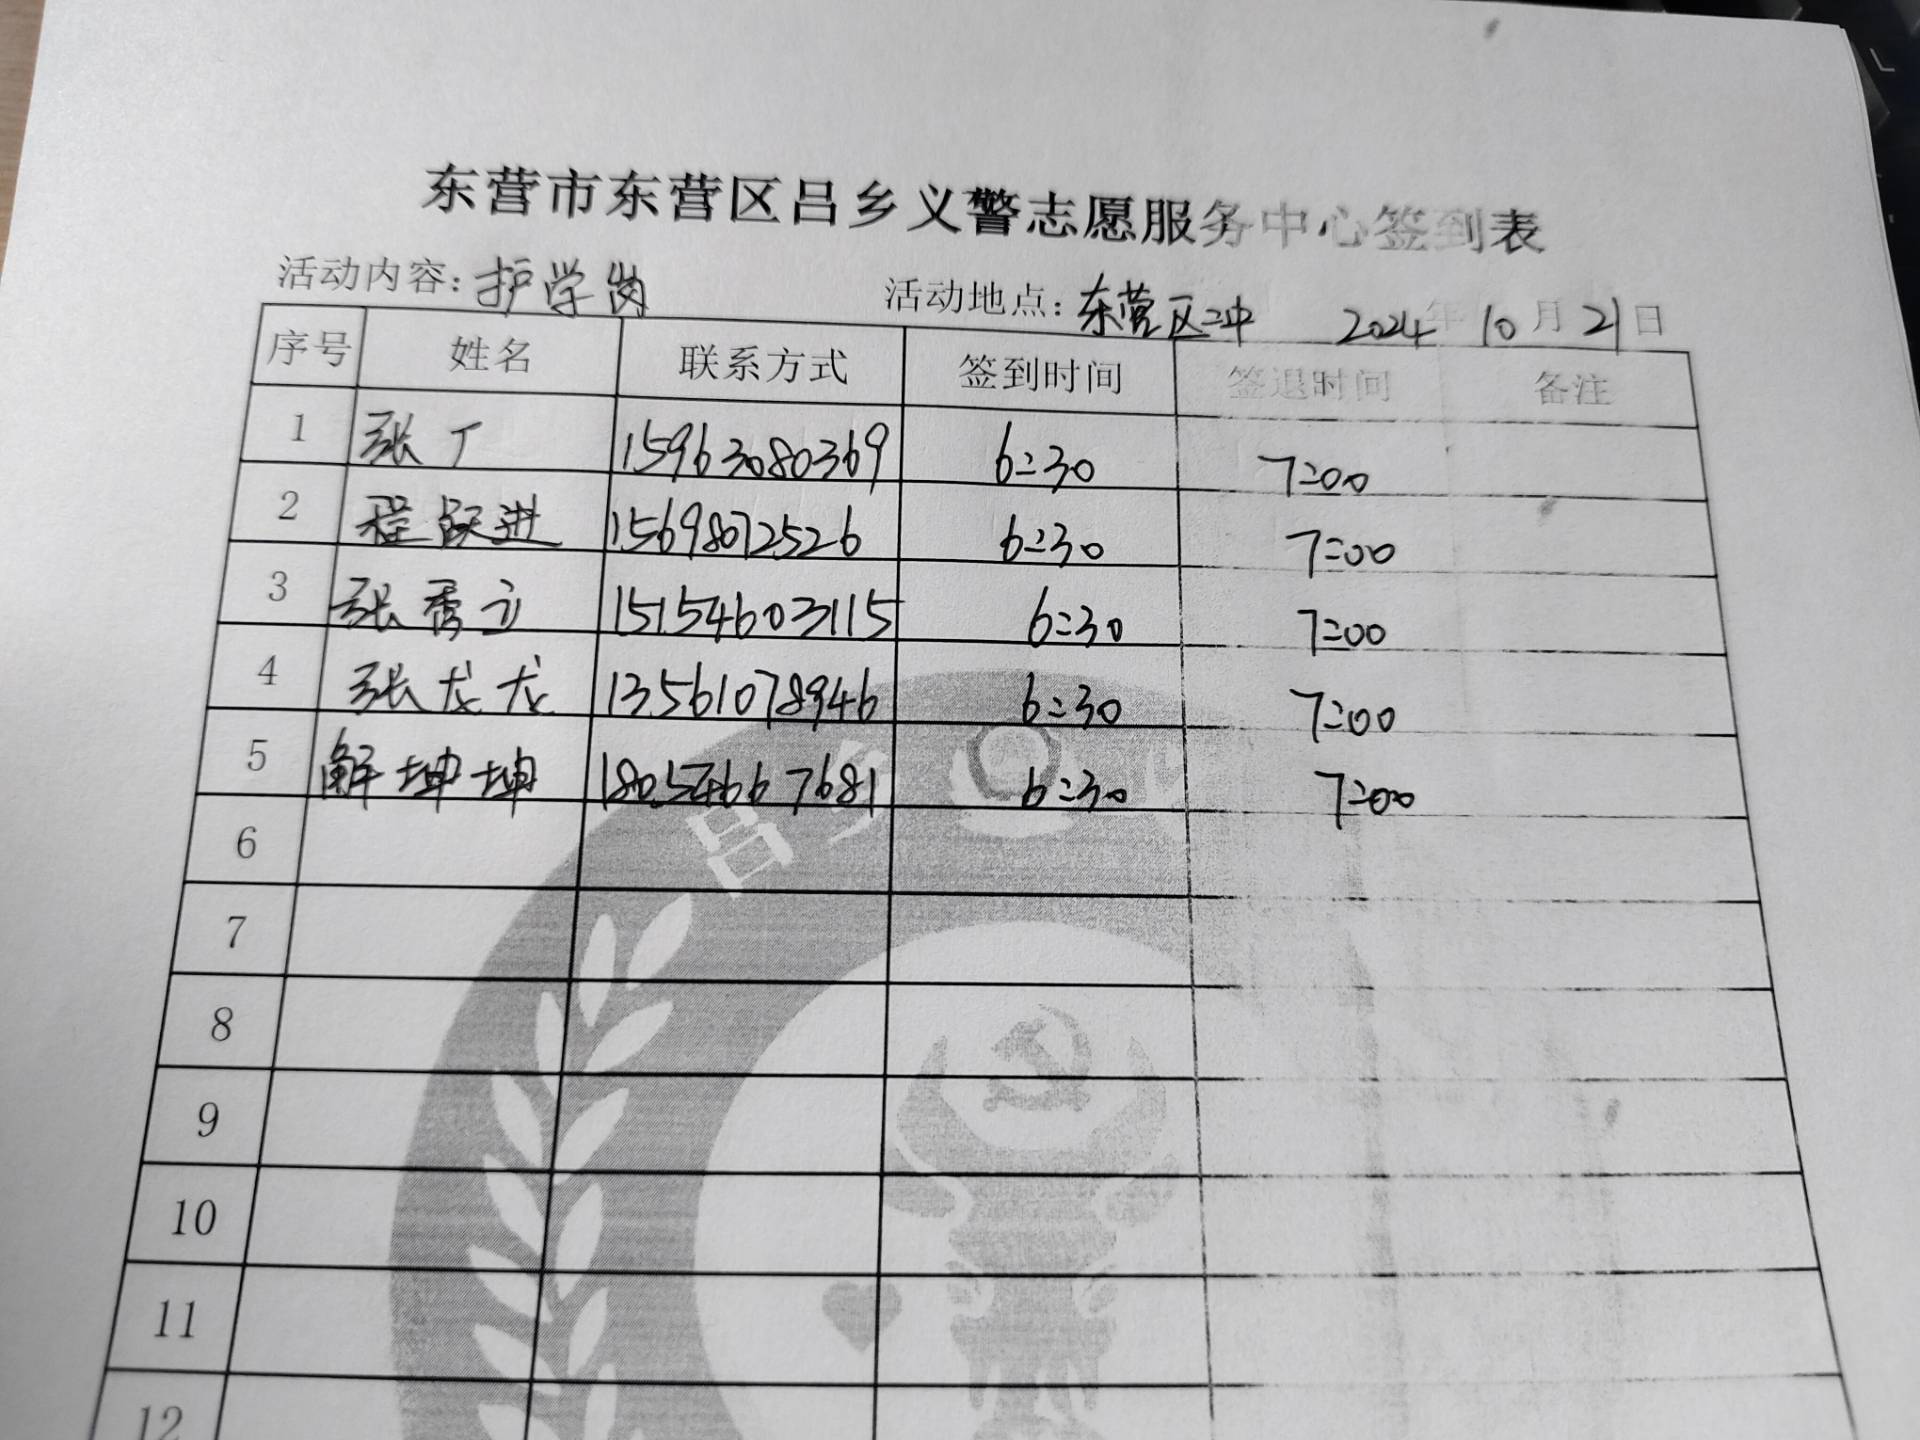 东营市东营区吕乡义警志愿服务中心签到表
活动内容：护学岗 活动地点：东营区二中 2024年10月21日
序号 姓名 联系方式 签到时间 签退时间 备注
1 张丁 15963080369 6:30 7:00
2 程跃进 15698072526 6:30 7:00
3 张秀立 15154603115 6:30 7:00
4 张龙龙 13561078946 6:30 7:00
5 解坤坤 18054667681 6:30 7:00
6
7
8
9
10
11
12
吕乡